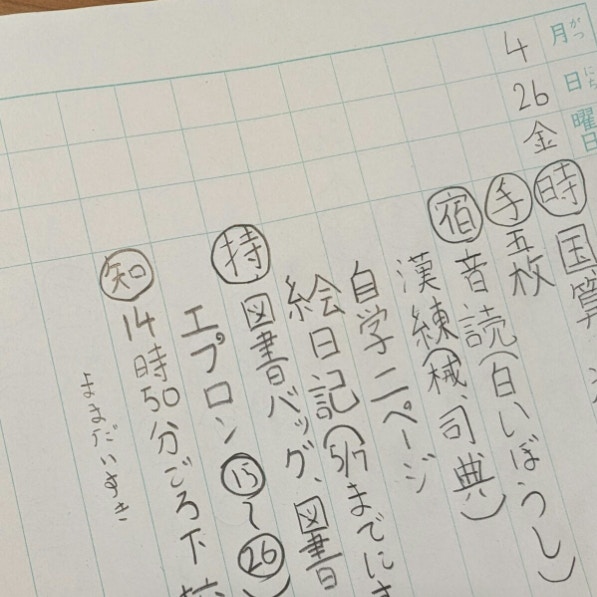 4月
26日
金曜日
時 国算
手 五枚
宿 音読(白いぼうし)
漢練(械、司典)
自学二ページ
絵日記(5/7までにま
持 図書バッグ、図書
エプロン⑮〜㉖)
知 14時50分ごろ下
ままだいすき